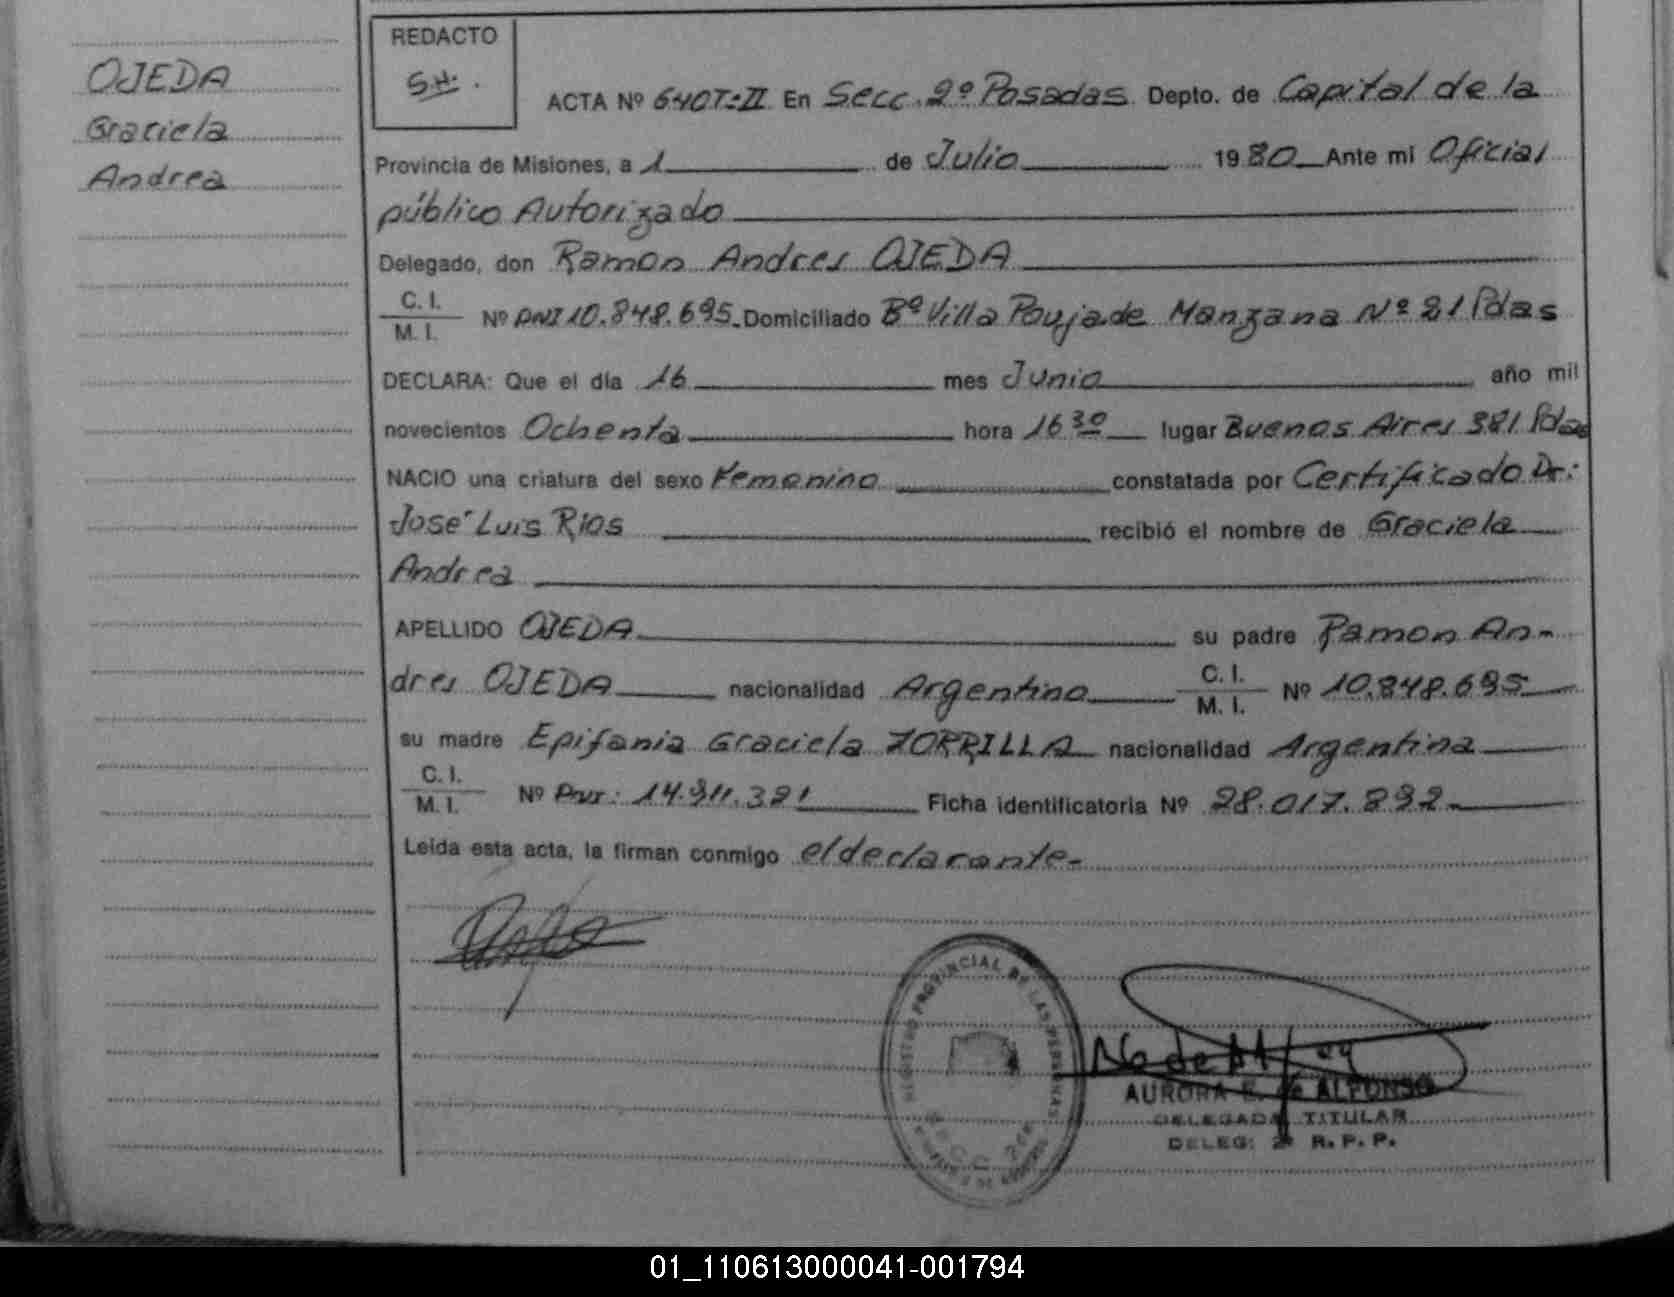 OJEDA
Graciela
Andrea
REDACTO
S.H.
ACTA Nº 640T:II En Secc. 2º Posadas Depto. de Capital de la
Provincia de Misiones, a 1 de Julio 1980 Ante mi Oficial
público Autorizado
Delegado, don Ramon Andres OJEDA
C. I.
M. I. Nº DNI 10.848.695. Domiciliado Bº Villa Poujade Manzana Nº 21 Pdas
DECLARA: Que el día 16 mes Junio año mil
novecientos Ochenta hora 16 30 lugar Buenos Aires 381 Pdas
NACIO una criatura del sexo Femenino constatada por Certificado Dr:
José Luis Rios recibió el nombre de Graciela
Andrea
APELLIDO OJEDA su padre Ramon An-
dres OJEDA nacionalidad Argentino C. I.
M. I. Nº 10.848.695
su madre Epifania Graciela ZORRILLA nacionalidad Argentina
C. I.
M. I. Nº DNI: 14.911.391 Ficha identificatoria Nº 28.017.892
Leída esta acta, la firman conmigo el declarante-
REGISTRO PROVINCIAL DE LAS PERSONAS
AURORA E. de ALFONSO
DELEGADA TITULAR
DELEG: 2ª R. P. P.
01_110613000041-001794